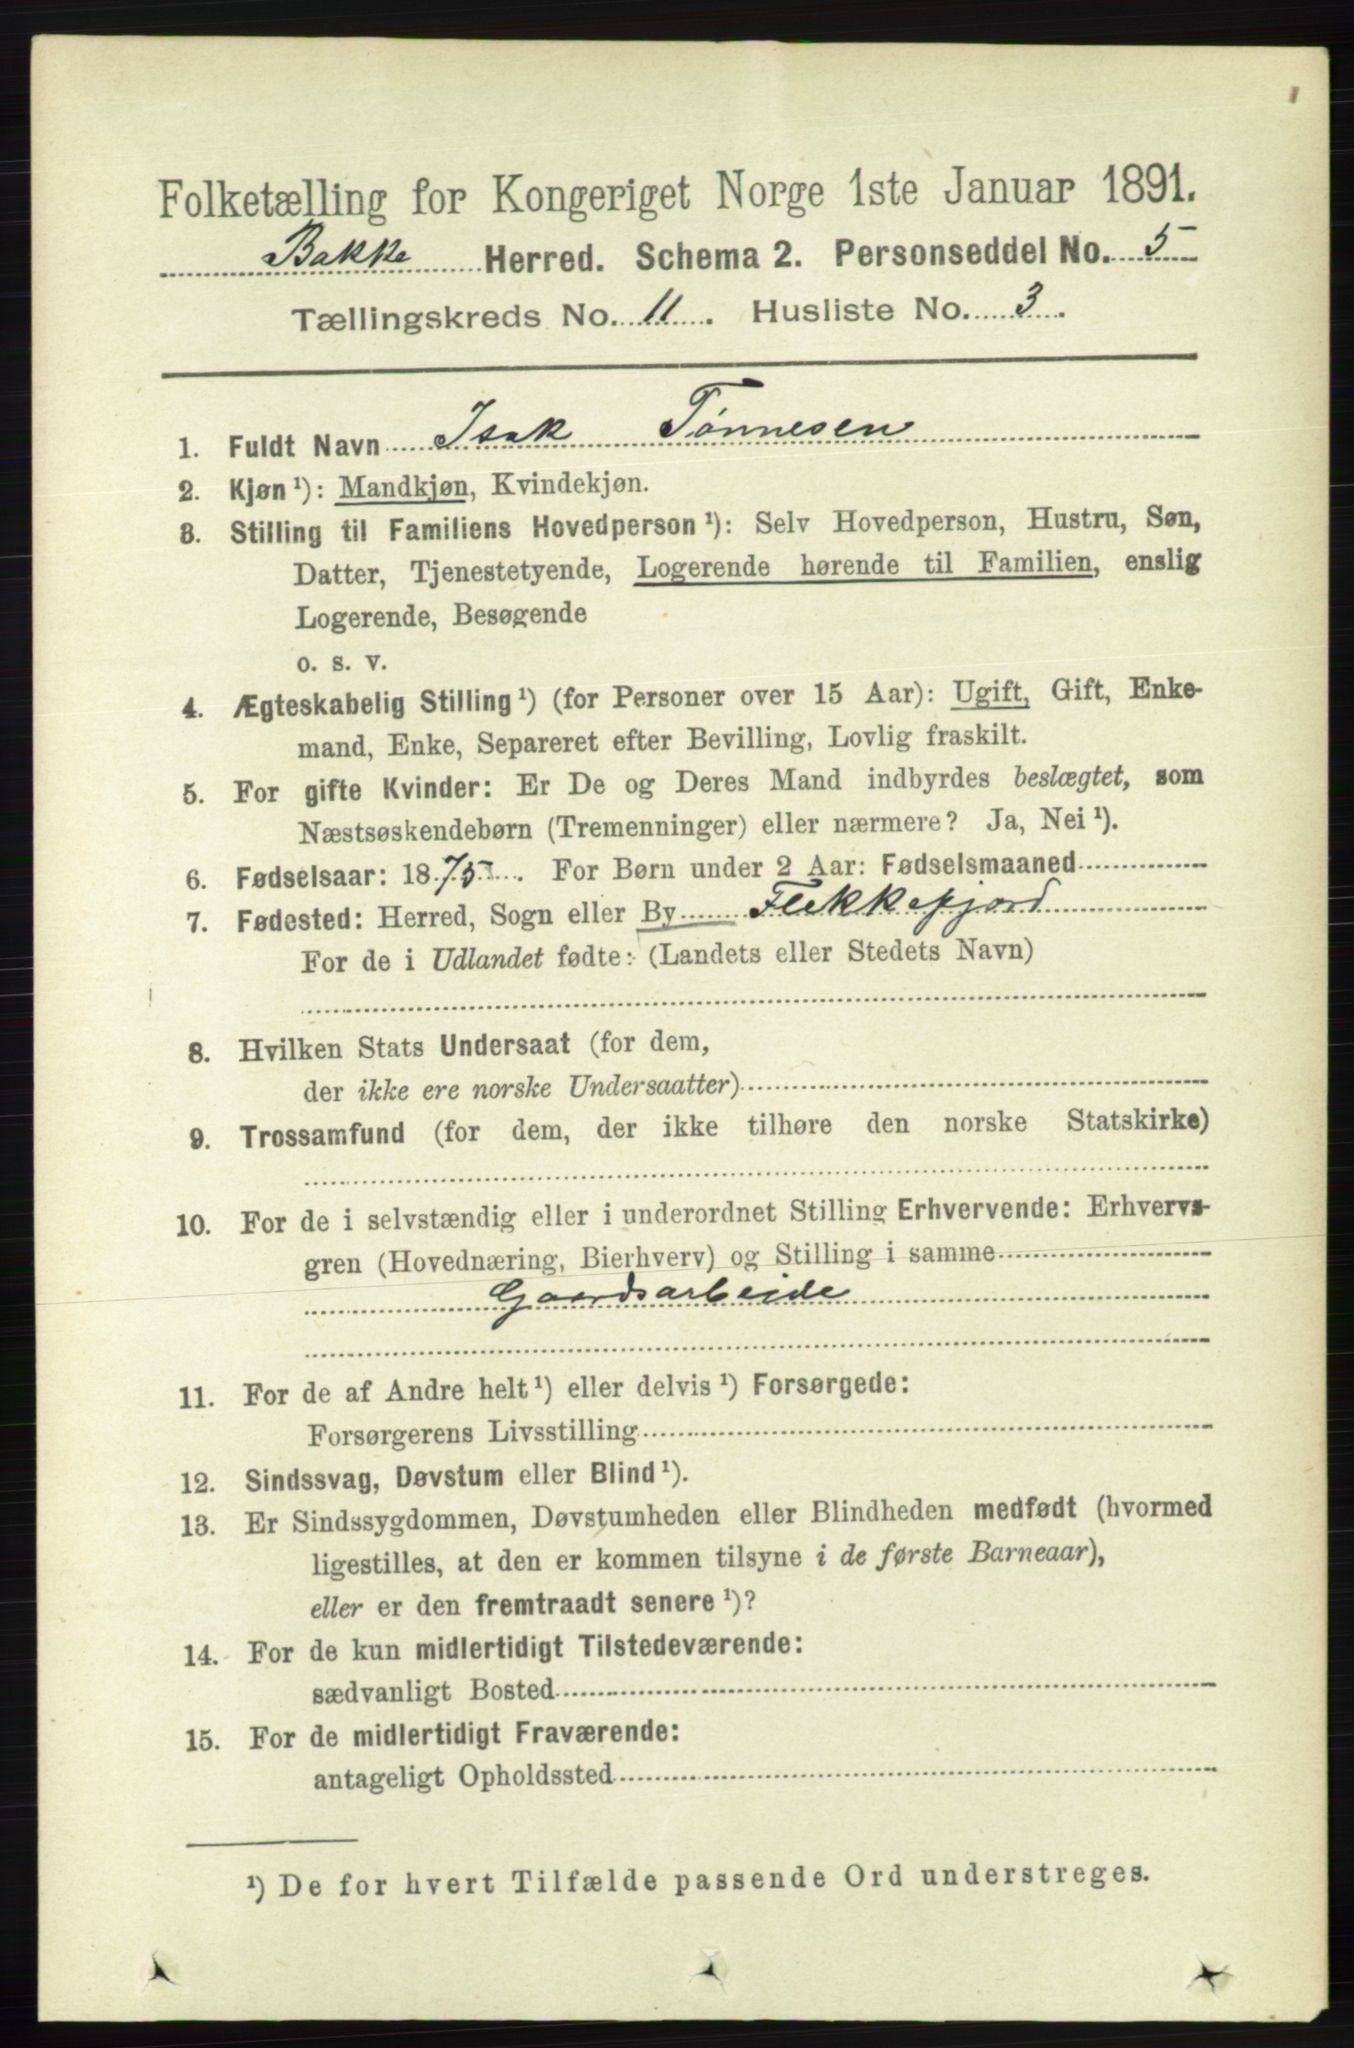 Folketælling for Kongeriget Norge 1ste Januar 1891.
Bakke Herred. Schema 2. Personseddel No. 5
Tællingskreds No. 11. Husliste No. 3.
1. Fuldt Navn Isak Tønnesen
2. Kjøn ¹): Mandkjøn, Kvindekjøn.
3. Stilling til Familiens Hovedperson ¹): Selv Hovedperson, Hustru, Søn,
Datter, Tjenestetyende, Logerende hørende til Familien, enslig
Logerende, Besøgende
o. s. v.
4. Ægteskabelig Stilling ¹) (for Personer over 15 Aar): Ugift, Gift, Enke-
mand, Enke, Separeret efter Bevilling, Lovlig fraskilt.
5. For gifte Kvinder: Er De og Deres Mand indbyrdes beslægtet, som
Næstsøskendebørn (Tremenninger) eller nærmere? Ja, Nei ¹).
6. Fødselsaar: 1875. For Børn under 2 Aar: Fødselsmaaned
7. Fødested: Herred, Sogn eller By Flekkefjord
For de i Udlandet fødte: (Landets eller Stedets Navn)
8. Hvilken Stats Undersaat (for dem,
der ikke ere norske Undersaatter)
9. Trossamfund (for dem, der ikke tilhøre den norske Statskirke)
10. For de i selvstændig eller i underordnet Stilling Erhvervende: Erhvervs-
gren (Hovednæring, Bierhverv) og Stilling i samme
Gaardsarbeide
11. For de af Andre helt ¹) eller delvis ¹) Forsørgede:
Forsørgerens Livsstilling
12. Sindssvag, Døvstum eller Blind ¹).
13. Er Sindssygdommen, Døvstumheden eller Blindheden medfødt (hvormed
ligestilles, at den er kommen tilsyne i de første Barneaar),
eller er den fremtraadt senere ¹)?
14. For de kun midlertidigt Tilstedeværende:
sædvanligt Bosted
15. For de midlertidigt Fraværende:
antageligt Opholdssted
¹) De for hvert Tilfælde passende Ord understreges.